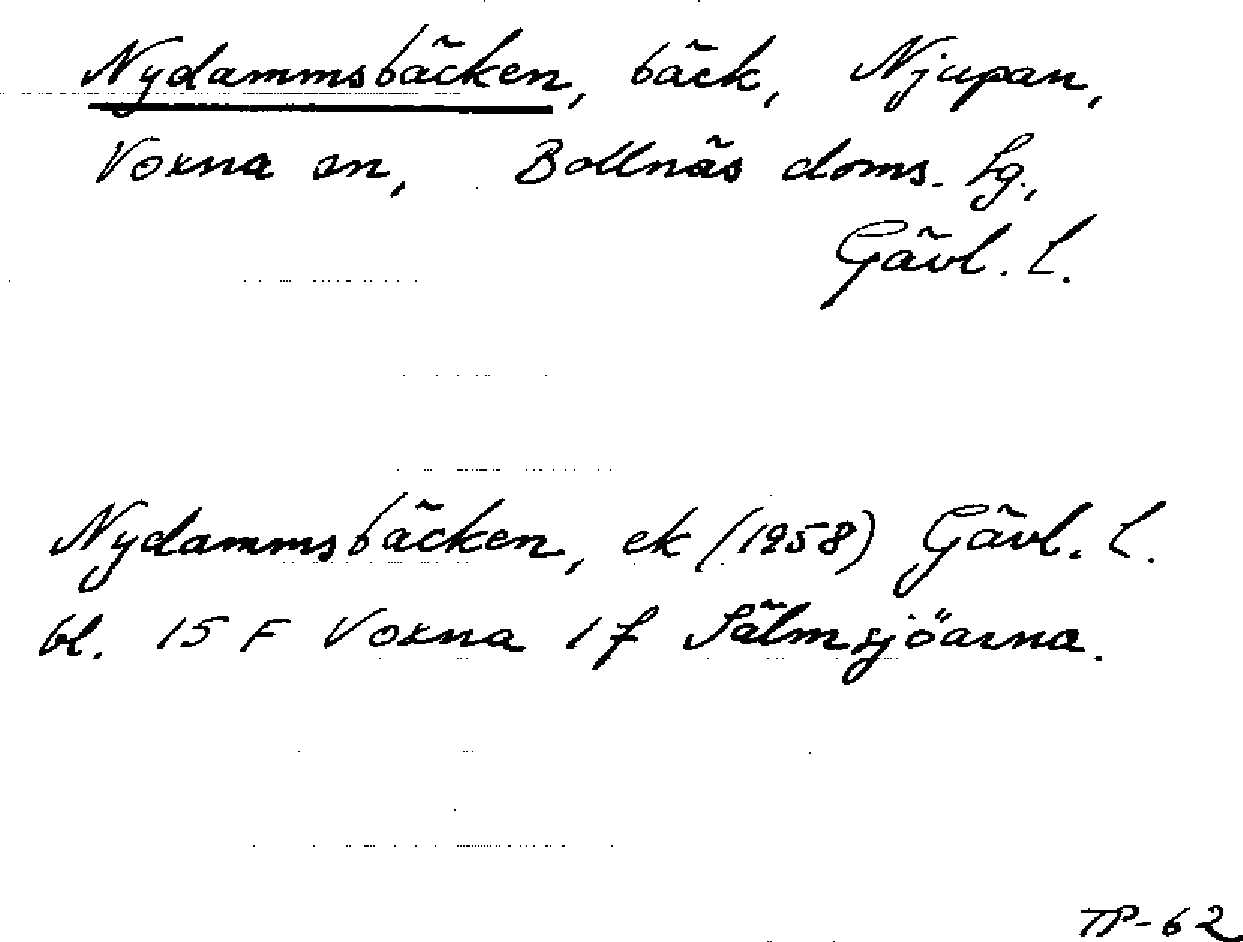 Nydammsbäcken, bäck, Njupan,
Voxna sn, Bollnäs doms. sg.,
Gävl. l.
Nydammsbäcken, ek (1958) Gävl. l.
bl. 15 F Voxna 1 f Sälmsjöarna.
TP-62